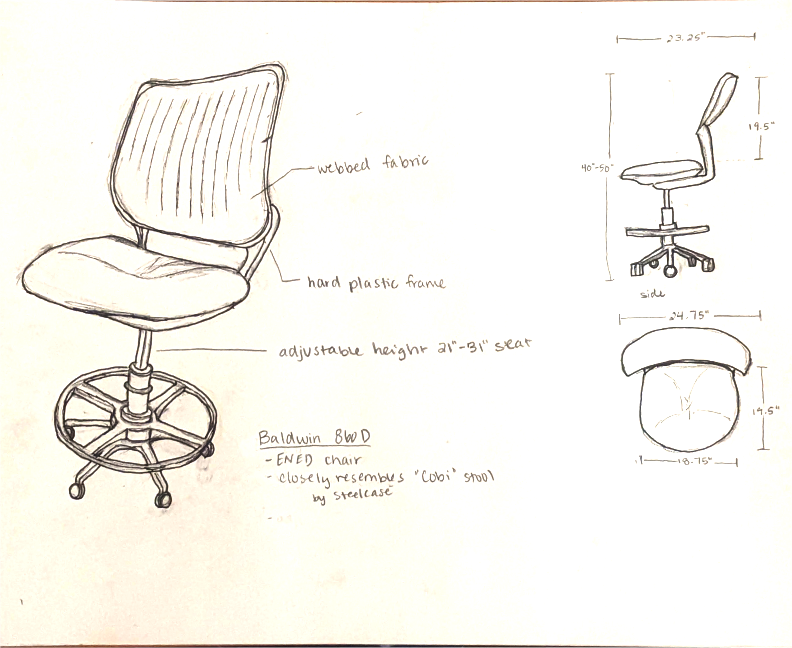 webbed fabric
hard plastic frame
adjustable height 21"-31" seat
Baldwin 860D
- ENED chair
- closely resembles "Cobi" stool
by steelcase
-
23.25"
19.5"
40"-50"
side
24.75"
19.5"
18.75"